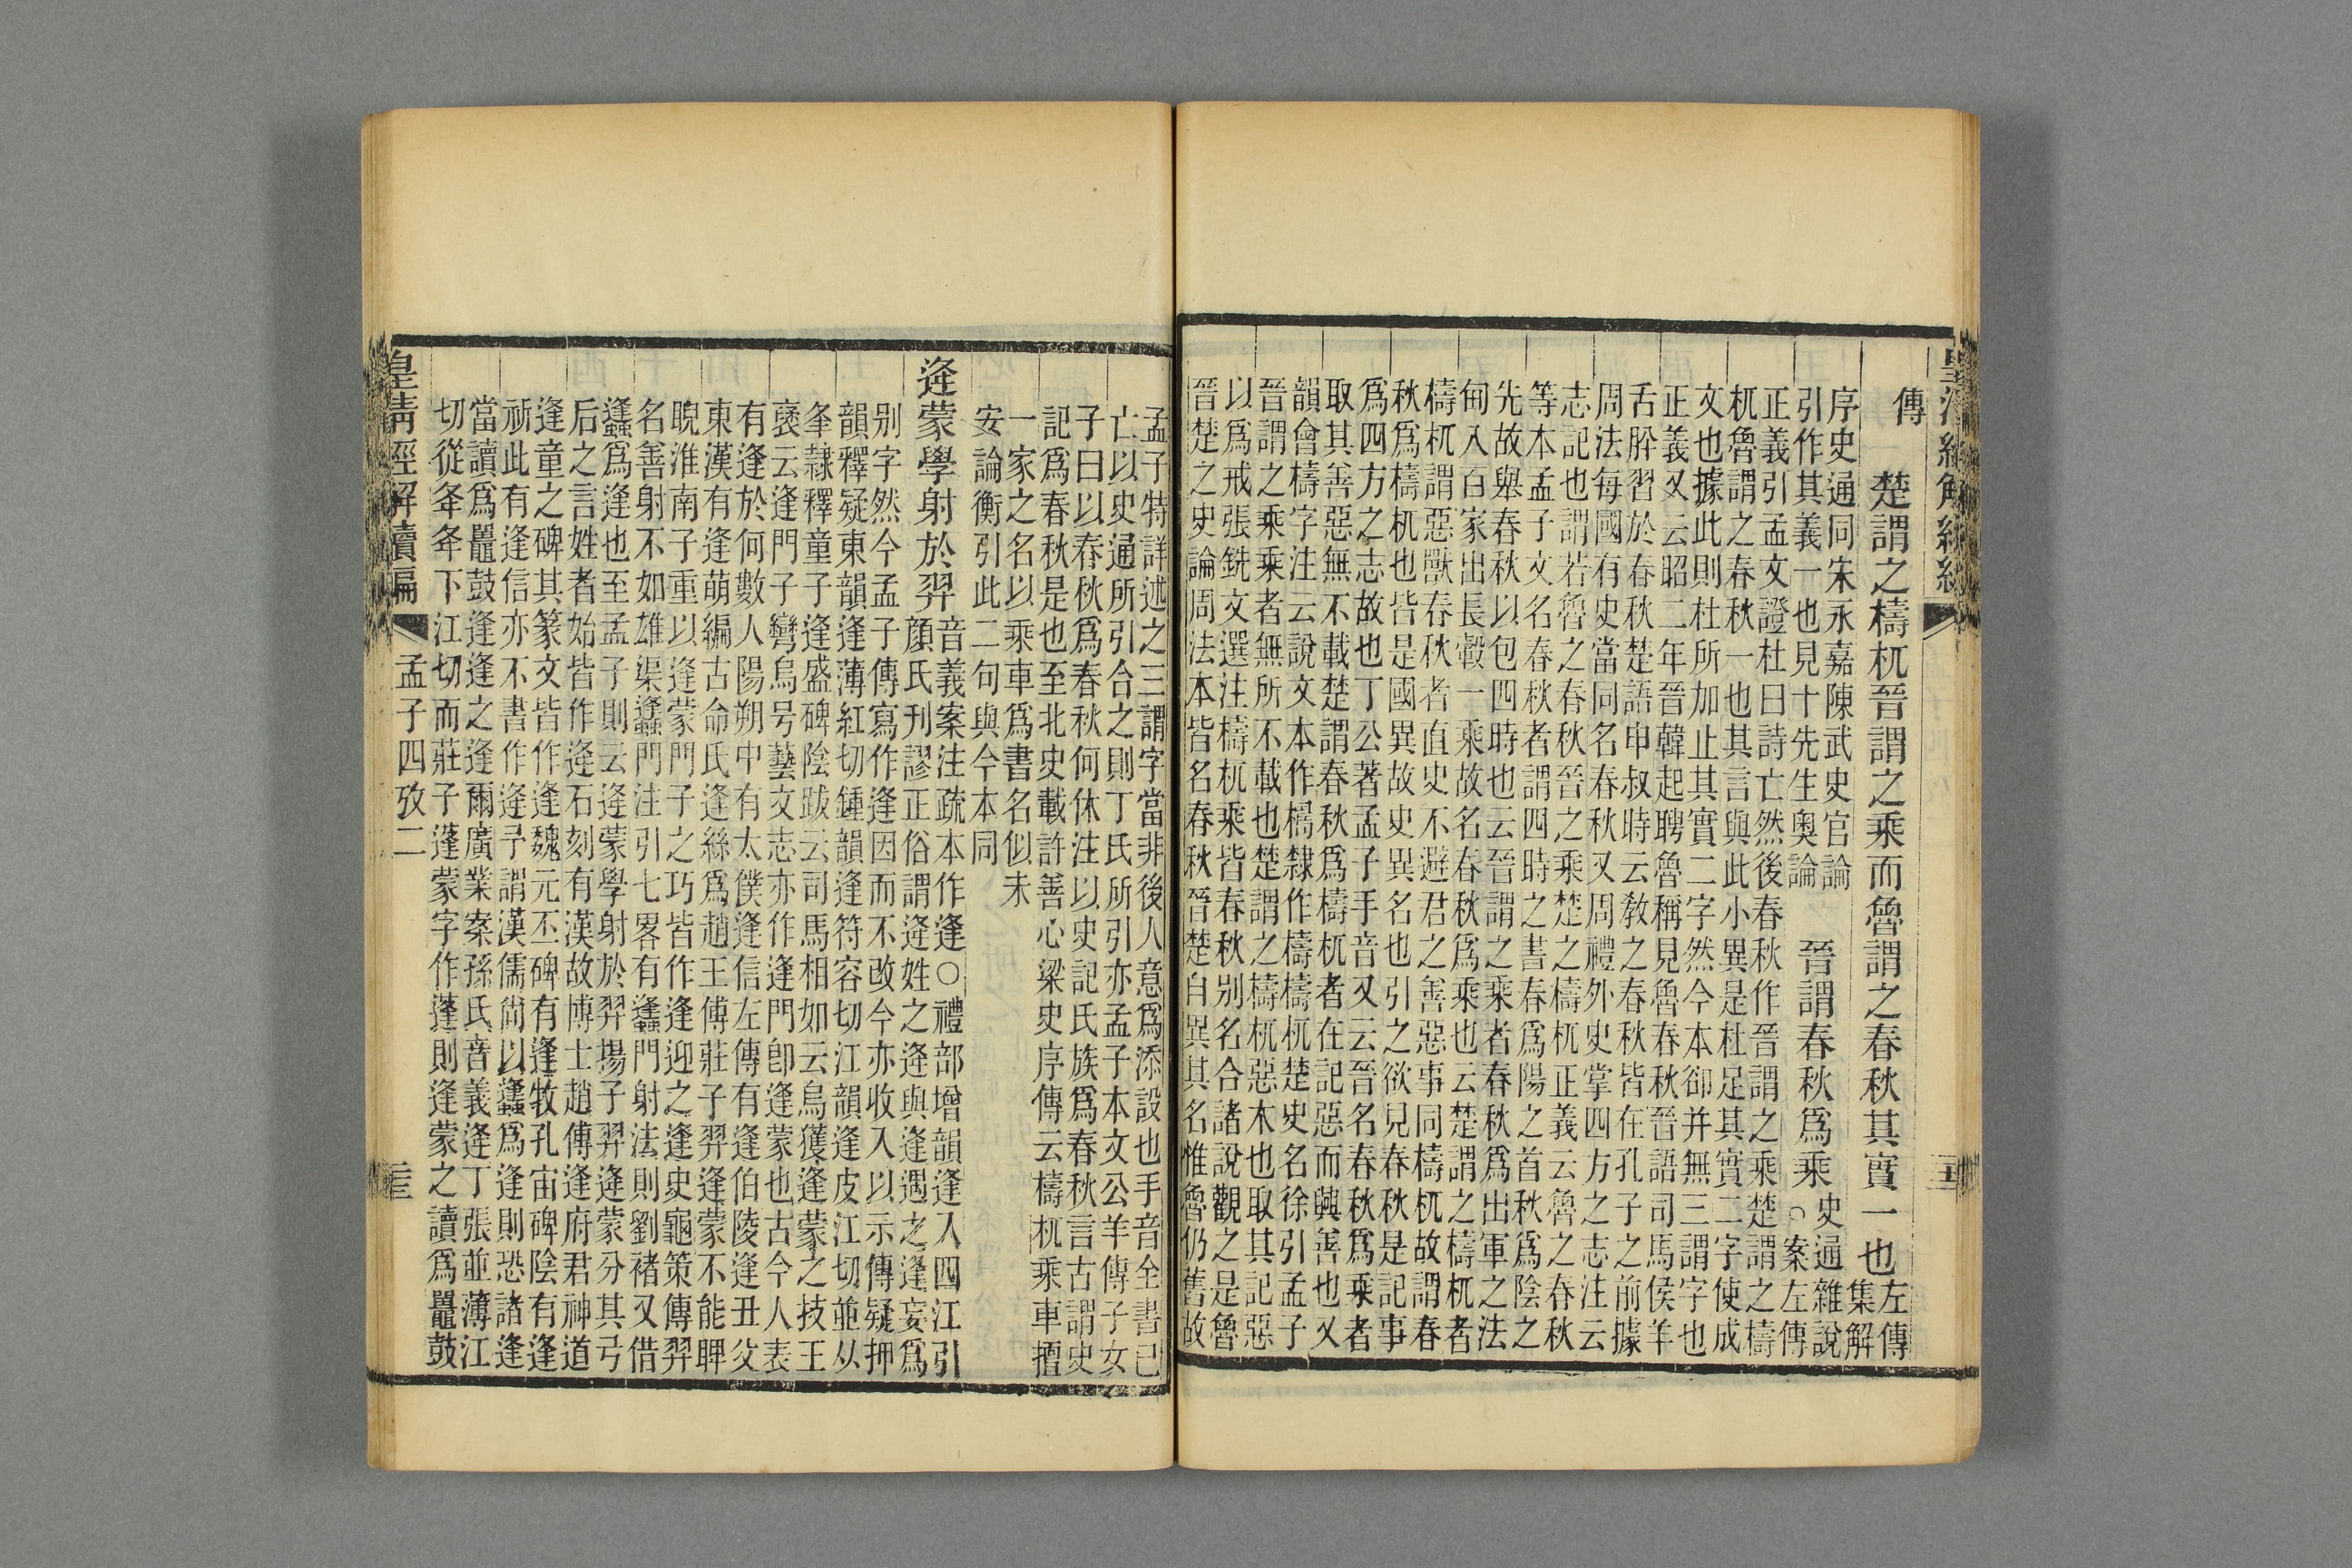 傳
楚謂之檮杌晉謂之乘而魯謂之春秋其實一也左傳
集解
序史通同宋永嘉陳武史官論
引作其義一也見十先生奧論
晉謂春秋爲乘史通雜說
○案左傳
正義引孟文證杜曰詩亡然後春秋作晉謂之乘楚謂之檮
杌魯謂之春秋一也其言與此小異是杜足其實二字使成
文也據此則杜所加止其實二字然今本卻并無三謂字也
正義又云昭二年晉韓起聘魯稱見魯春秋晉語司馬侯羊
舌肸習於春秋楚語申叔時云敎之春秋皆在孔子之前據
周法每國有史當同名春秋又周禮外史掌四方之志注云
志記也謂若魯之春秋晉之乘楚之檮杌正義云魯之春秋
等本孟子文名春秋者謂四時之書春爲陽之首秋爲陰之
先故舉春秋以包四時也云晉謂之乘者春秋爲出軍之法
甸入百家出長轂一乘故名春秋爲乘也云楚謂之檮杌者
檮杌謂惡獸春秋者直史不避君之善惡事同檮杌故謂春
秋爲檮杌也皆是國異故史異名也引之欲見春秋是記事
爲四方之志故也丁公著孟子手音又云晉名春秋爲乘者
取其善惡無不載楚謂春秋爲檮杌者在記惡而興善也又
韻會檮字注云說文本作檮隸作檮檮杌楚史名徐引孟子
晉謂之乘乘者無所不載也楚謂之檮杌惡木也取其記惡
以爲戒張銑文選注檮杌乘皆春秋别名合諸說觀之是魯
晉楚之史論周法本皆名春秋晉楚自異其名惟魯仍舊故
孟子特詳述之三謂字當非後人意爲添設也手音全書已
亡以史通所引合之則丁氏所引亦孟子本文公羊傳子女
子曰以春秋爲春秋何休注以史記氏族爲春秋言古謂史
記爲春秋是也至北史載許善心梁史序傳云檮杌乘車擅
一家之名以乘車爲書名似未
安論衡引此二句與今本同
逄蒙學射於羿音義案注疏本作逢○禮部增韻逄入四江引
顔氏刊謬正俗謂逄姓之逄與逢遇之逢妄爲
别字然今孟子傳寫作逢因而不改今亦收入以示傳疑押
韻釋疑東韻逢薄紅切鍾韻逢符容切江韻逄皮江切並从
夆隸釋童子逢盛碑陰跋云司馬相如云烏獲逢蒙之技王
襃云逢門子彎烏号藝文志亦作逢門卽逢蒙也古今人表
有逢於何數人陽朔中有太僕逢信左傳有逢伯陵逢丑父
東漢有逢萌編古命氏逢絲爲趙王傅莊子羿逢蒙不能睥
睨淮南子重以逢蒙門子之巧皆作逢迎之逢史龜策傳羿
名善射不如雄渠蠭門注引七畧有蠭門射法則劉褚又借
蠭爲逢也至孟子則云逄蒙學射於羿揚子羿逄蒙分其弓
后之言姓者始皆作逄石刻有漢故博士趙傅逢府君神道
逢童之碑其篆文皆作逢魏元丕碑有逢牧孔宙碑陰有逢
祈此有逢信亦不書作逄予謂漢儒尙以蠭爲逢則恐諸逢
當讀爲鼉鼓逢逢之逢爾廣業案孫氏音義逄丁張並薄江
切從夅夅下江切而莊子蓬蒙字作蓬則逢蒙之讀爲鼉鼓
皇清經解續編
孟子四攷二